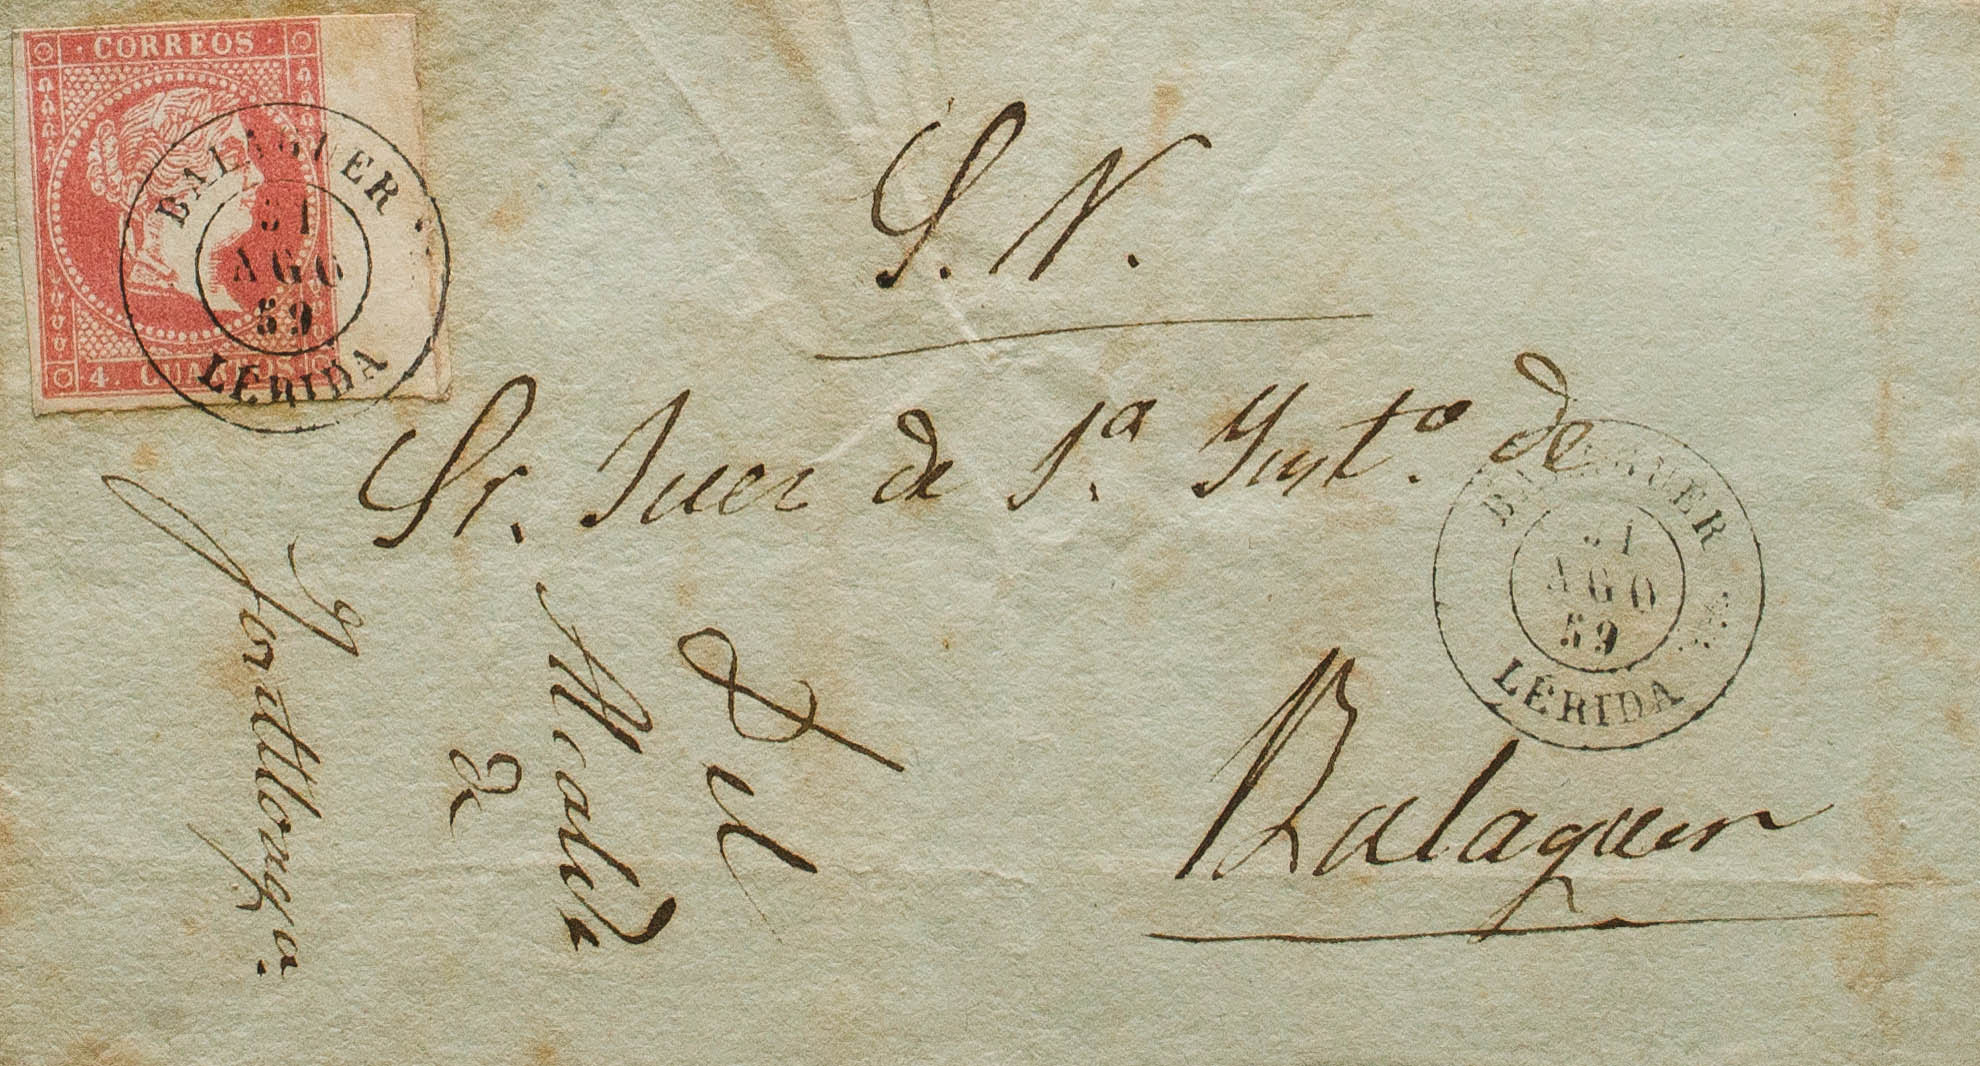 CORREOS
4. CUARTOS
BALAGUER
31
AGO
59
LERIDA
S. N.
Sr. Juez de 1.ª Inst.ª de
Balaguer
BALAGUER
31
AGO
59
LERIDA
El
Alcalde
de